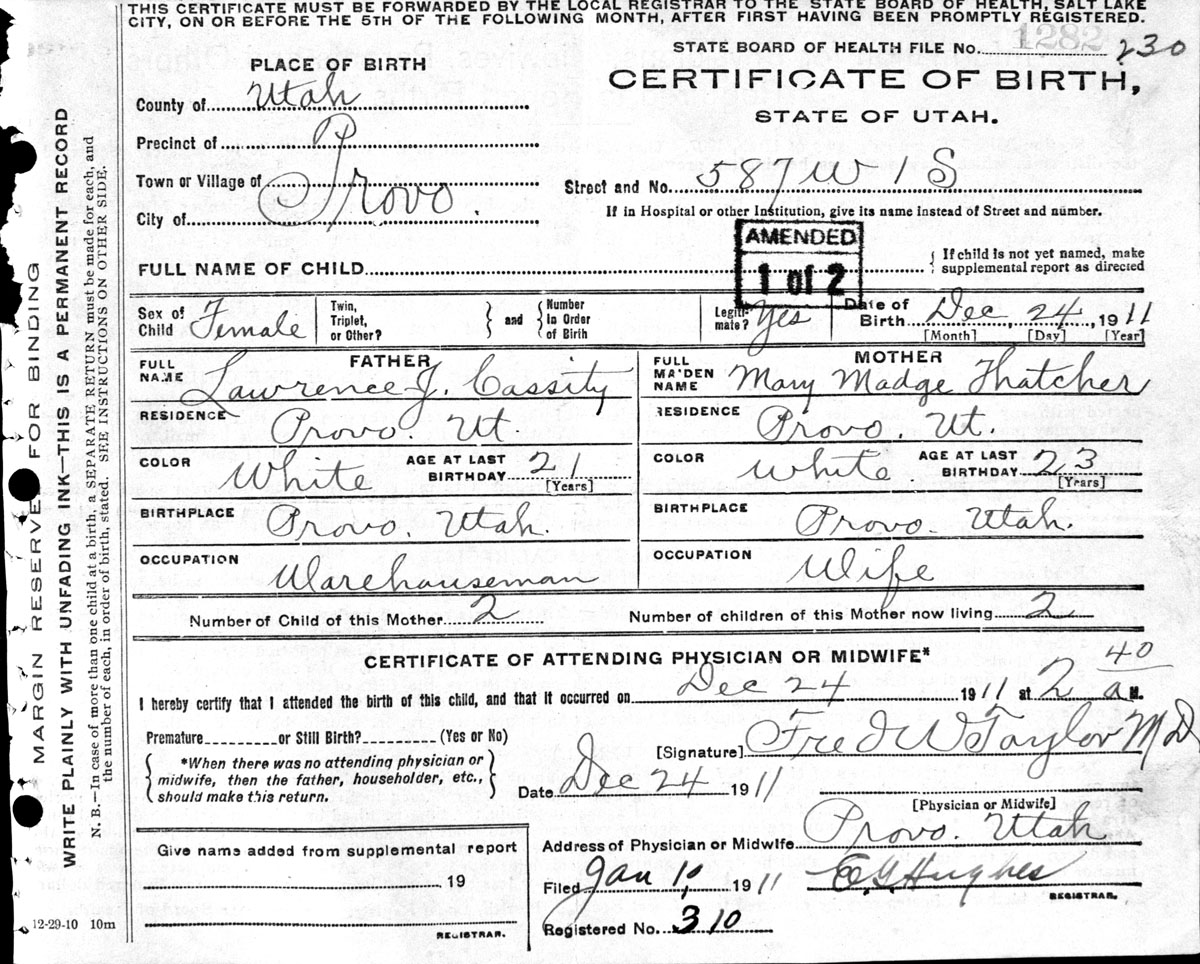 THIS CERTIFICATE MUST BE FORWARDED BY THE LOCAL REGISTRAR TO THE STATE BOARD OF HEALTH, SALT LAKE
CITY, ON OR BEFORE THE 5TH OF THE FOLLOWING MONTH, AFTER FIRST HAVING BEEN PROMPTLY REGISTERED.
1282
STATE BOARD OF HEALTH FILE No. 230
PLACE OF BIRTH
CERTIFICATE OF BIRTH,
STATE OF UTAH.
County of Utah
Precinct of
Town or Village of Provo.
City of
Street and No. 587 W 1 S
If in Hospital or other Institution, give its name instead of Street and number.
AMENDED
1 of 2
FULL NAME OF CHILD
{ If child is not yet named, make
supplemental report as directed
Sex of Child Female
Twin, Triplet, or Other?
} and {
Number In Order of Birth
Legiti-mate? Yes
Date of Birth Dec, 24, 1911
[Month] [Day] [Year]
FATHER
FULL NAME Lawrence J. Cassity
MOTHER
FULL MAIDEN NAME Mary Madge Thatcher
RESIDENCE Provo. Ut.
RESIDENCE Provo. Ut.
COLOR White AGE AT LAST BIRTHDAY 21 [Years]
COLOR White. AGE AT LAST BIRTHDAY 23 [Years]
BIRTHPLACE Provo. Utah.
BIRTHPLACE Provo, Utah.
OCCUPATION Warehouseman
OCCUPATION Wife
Number of Child of this Mother 2 Number of children of this Mother now living 2
CERTIFICATE OF ATTENDING PHYSICIAN OR MIDWIFE*
I hereby certify that I attended the birth of this child, and that it occurred on Dec 24 1911 at 2 40 a M.
Premature or Still Birth? (Yes or No)
[Signature] Fred W Taylor M D
{ *When there was no attending physician or
midwife, then the father, householder, etc.,
should make this return. }
Date Dec 24 1911
[Physician or Midwife]
Give name added from supplemental report
19
REGISTRAR.
Address of Physician or Midwife Provo. Utah
Filed Jan 1, 1911 E G Hughes
REGISTRAR.
Registered No. 310
12-29-10 10m
MARGIN RESERVED FOR BINDING
WRITE PLAINLY WITH UNFADING INK—THIS IS A PERMANENT RECORD
N. B.—In case of more than one child at a birth, a SEPARATE RETURN must be made for each, and
the number of each, in order of birth, stated. SEE INSTRUCTIONS ON OTHER SIDE.